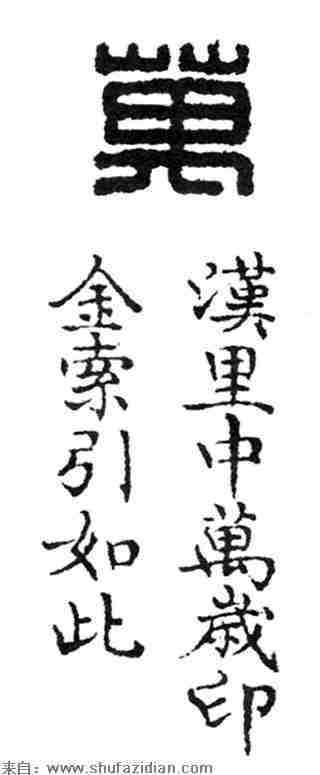 萬
漢里中萬歲印
金索引如此
来自：www.shufazidian.com